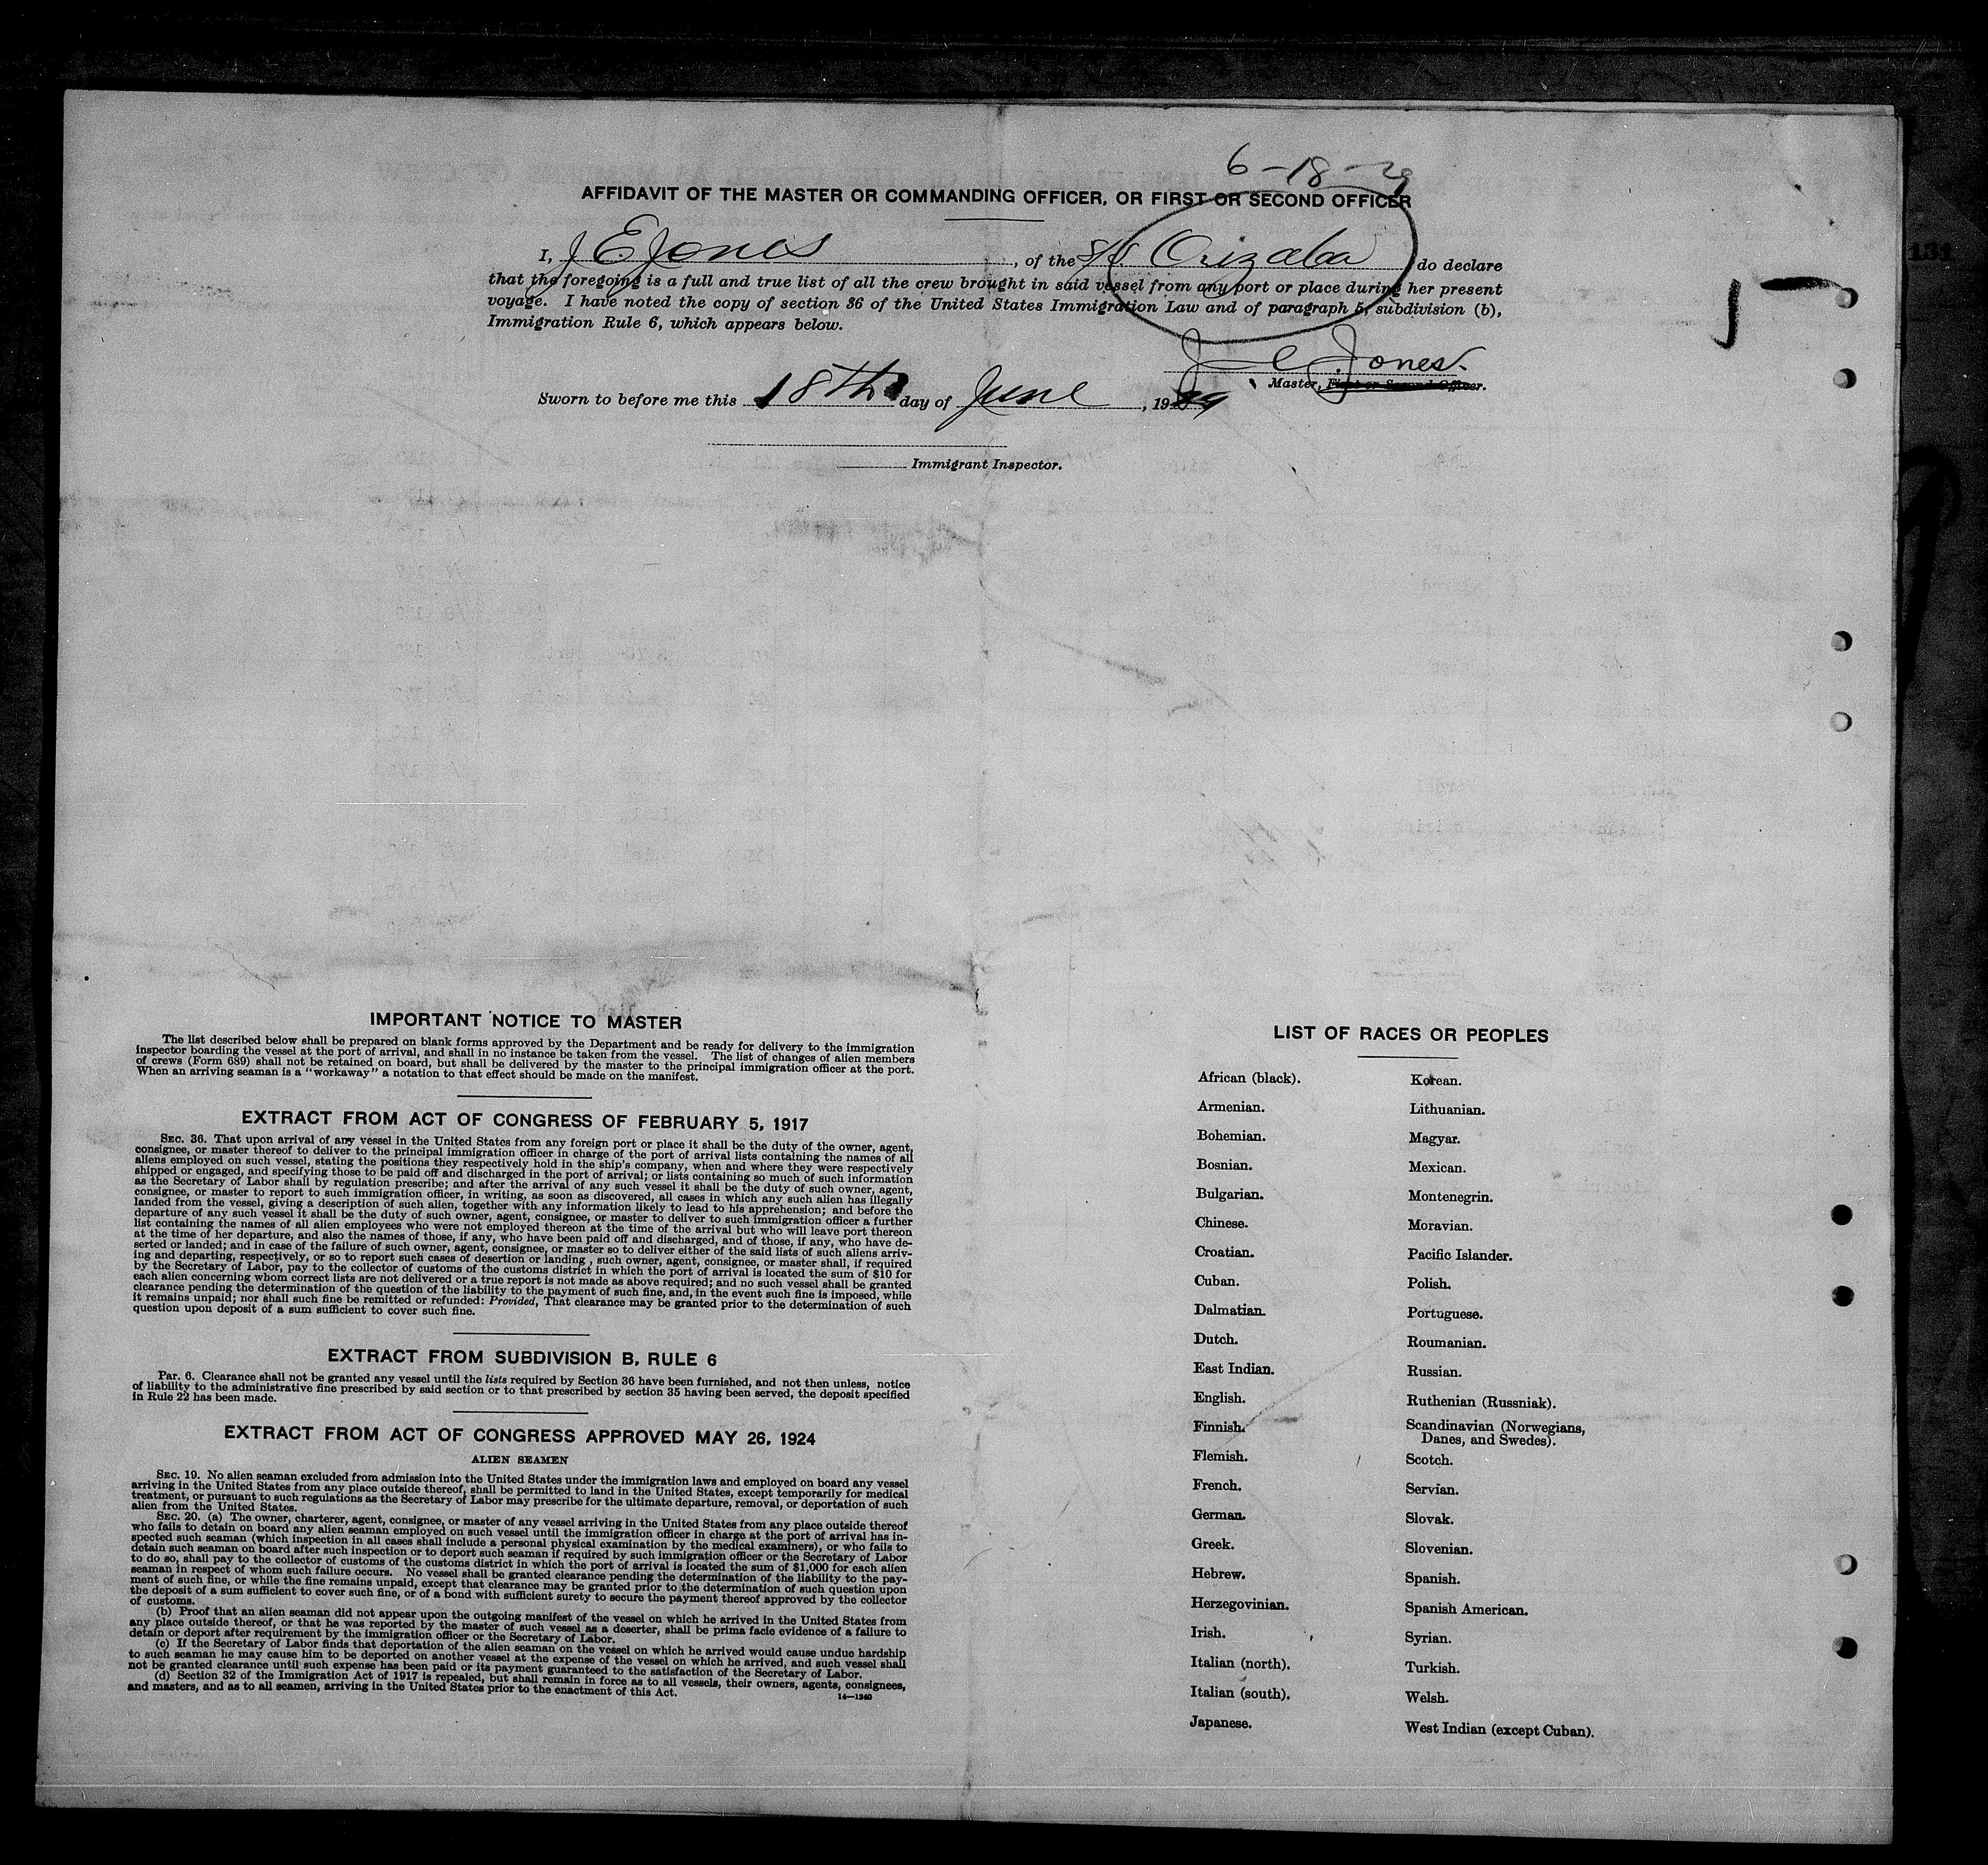 6-18-29
AFFIDAVIT OF THE MASTER OR COMMANDING OFFICER, OR FIRST OR SECOND OFFICER
I, J E Jones, of the SS. Orizaba do declare
that the foregoing is a full and true list of all the crew brought in said vessel from any port or place during her present
voyage. I have noted the copy of section 36 of the United States Immigration Law and of paragraph 5, subdivision (b),
Immigration Rule 6, which appears below.
J E Jones.
Master, First or Second Officer.
Sworn to before me this 18th day of June, 1929
Immigrant Inspector.
131
IMPORTANT NOTICE TO MASTER
The list described below shall be prepared on blank forms approved by the Department and be ready for delivery to the immigration
inspector boarding the vessel at the port of arrival, and shall in no instance be taken from the vessel. The list of changes of alien members
of crews (Form 689) shall not be retained on board, but shall be delivered by the master to the principal immigration officer at the port.
When an arriving seaman is a "workaway" a notation to that effect should be made on the manifest.
EXTRACT FROM ACT OF CONGRESS OF FEBRUARY 5, 1917
SEC. 36. That upon arrival of any vessel in the United States from any foreign port or place it shall be the duty of the owner, agent,
consignee, or master thereof to deliver to the principal immigration officer in charge of the port of arrival lists containing the names of all
aliens employed on such vessel, stating the positions they respectively hold in the ship's company, when and where they were respectively
shipped or engaged, and specifying those to be paid off and discharged in the port of arrival; or lists containing so much of such information
as the Secretary of Labor shall by regulation prescribe; and after the arrival of any such vessel it shall be the duty of such owner, agent,
consignee, or master to report to such immigration officer, in writing, as soon as discovered, all cases in which any such alien has illegally
landed from the vessel, giving a description of such alien, together with any information likely to lead to his apprehension; and before the
departure of any such vessel it shall be the duty of such owner, agent, consignee, or master to deliver to such immigration officer a further
list containing the names of all alien employees who were not employed thereon at the time of the arrival but who will leave port thereon
at the time of her departure, and also the names of those, if any, who have been paid off and discharged, and of those, if any, who have de-
serted or landed; and in case of the failure of such owner, agent, consignee, or master so to deliver either of the said lists of such aliens arriv-
ing and departing, respectively, or so to report such cases of desertion or landing, such owner, agent, consignee, or master shall, if required
by the Secretary of Labor, pay to the collector of customs of the customs district in which the port of arrival is located the sum of $10 for
each alien concerning whom correct lists are not delivered or a true report is not made as above required; and no such vessel shall be granted
clearance pending the determination of the question of the liability to the payment of such fine, and, in the event such fine is imposed, while
it remains unpaid; nor shall such fine be remitted or refunded: Provided, That clearance may be granted prior to the determination of such
question upon deposit of a sum sufficient to cover such fine.
EXTRACT FROM SUBDIVISION B, RULE 6
Par. 6. Clearance shall not be granted any vessel until the lists required by Section 36 have been furnished, and not then unless, notice
of liability to the administrative fine prescribed by said section or to that prescribed by section 35 having been served, the deposit specified
in Rule 22 has been made.
EXTRACT FROM ACT OF CONGRESS APPROVED MAY 26, 1924
ALIEN SEAMEN
SEC. 19. No alien seaman excluded from admission into the United States under the immigration laws and employed on board any vessel
arriving in the United States from any place outside thereof, shall be permitted to land in the United States, except temporarily for medical
treatment, or pursuant to such regulations as the Secretary of Labor may prescribe for the ultimate departure, removal, or deportation of such
alien from the United States.
SEC. 20. (a) The owner, charterer, agent, consignee, or master of any vessel arriving in the United States from any place outside thereof
who fails to detain on board any alien seaman employed on such vessel until the immigration officer in charge at the port of arrival has in-
spected such seaman (which inspection in all cases shall include a personal physical examination by the medical examiners), or who fails to
detain such seaman on board after such inspection or to deport such seaman if required by such immigration officer or the Secretary of Labor
to do so, shall pay to the collector of customs of the customs district in which the port of arrival is located the sum of $1,000 for each alien
seaman in respect of whom such failure occurs. No vessel shall be granted clearance pending the determination of the liability to the pay-
ment of such fine, or while the fine remains unpaid, except that clearance may be granted prior to the determination of such question upon
the deposit of a sum sufficient to cover such fine, or of a bond with sufficient surety to secure the payment thereof approved by the collector
of customs.
(b) Proof that an alien seaman did not appear upon the outgoing manifest of the vessel on which he arrived in the United States from
any place outside thereof, or that he was reported by the master of such vessel as a deserter, shall be prima facie evidence of a failure to
detain or deport after requirement by the immigration officer or the Secretary of Labor.
(c) If the Secretary of Labor finds that deportation of the alien seaman on the vessel on which he arrived would cause undue hardship
to such seaman he may cause him to be deported on another vessel at the expense of the vessel on which he arrived, and such vessel shall
not be granted clearance until such expense has been paid or its payment guaranteed to the satisfaction of the Secretary of Labor.
(d) Section 32 of the Immigration Act of 1917 is repealed, but shall remain in force as to all vessels, their owners, agents, consignees,
and masters, and as to all seamen, arriving in the United States prior to the enactment of this Act.
14—1240
LIST OF RACES OR PEOPLES
African (black).
Armenian.
Bohemian.
Bosnian.
Bulgarian.
Chinese.
Croatian.
Cuban.
Dalmatian.
Dutch.
East Indian.
English.
Finnish.
Flemish.
French.
German.
Greek.
Hebrew.
Herzegovinian.
Irish.
Italian (north).
Italian (south).
Japanese.
Korean.
Lithuanian.
Magyar.
Mexican.
Montenegrin.
Moravian.
Pacific Islander.
Polish.
Portuguese.
Roumanian.
Russian.
Ruthenian (Russniak).
Scandinavian (Norwegians,
Danes, and Swedes).
Scotch.
Servian.
Slovak.
Slovenian.
Spanish.
Spanish American.
Syrian.
Turkish.
Welsh.
West Indian (except Cuban).